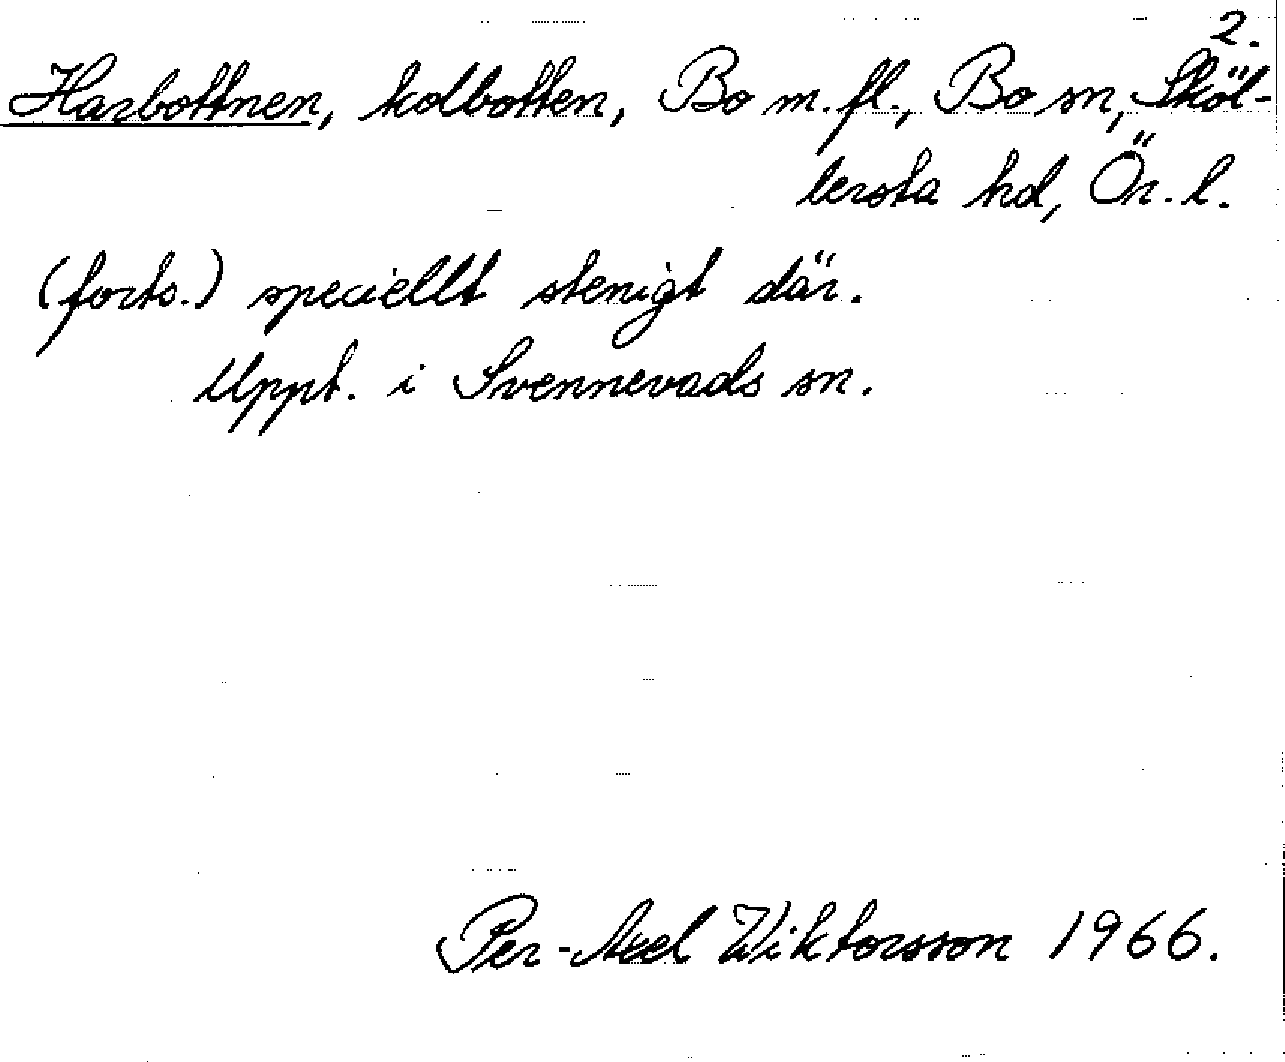 2.
Harbottnen, kolbotten, Bo m. fl., Bo sn, Sköl-
lersta hd, Ör. l.
(forts.) speciellt stenigt där.
Uppt. i Svennevads sn.
Per-Axel Wiktorsson 1966.